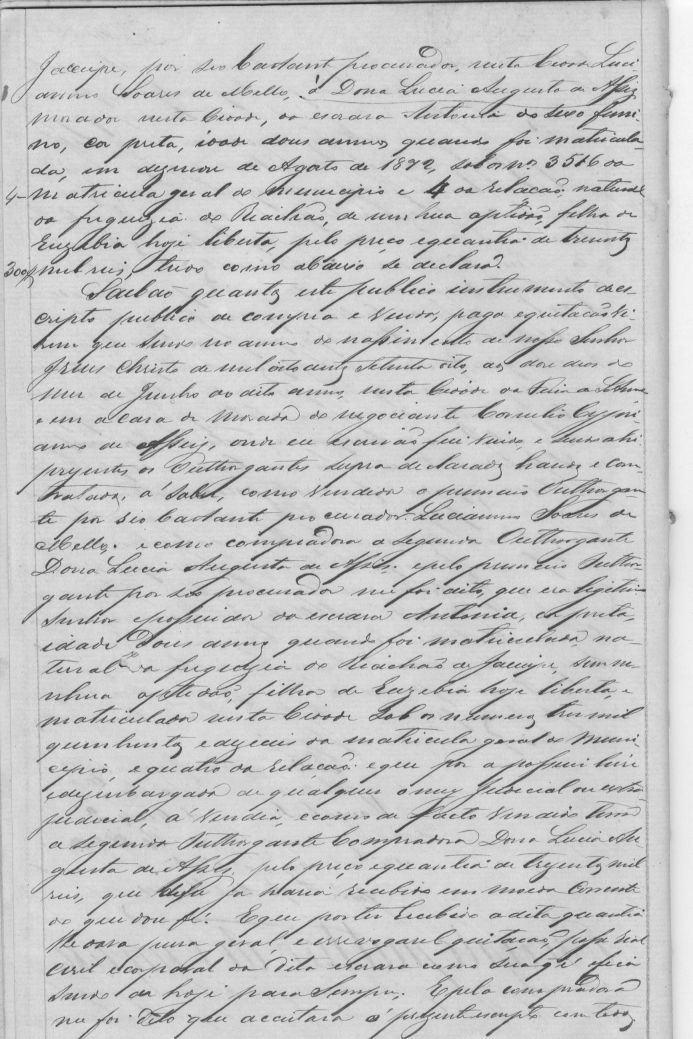 Jacuipe, por seo bastante procurador, nesta Cidade Luci
anno Soares de Mello, á Dona Lucia Augusta de Assiz
morador nesta Cidade, da escrava Antonia do sexo femi
nino, cor preta, idade dous annos quando foi matricula
da, em dezenove de Agosto de 1872, sob os nos. 3516 da
4- matricula geral do municipio e 4 da relação, natural
da freguezia do Riachão, de nenhua aptidão, filha de
Euzebia hoje liberta, pelo preço e quantia de trezentos
300$ mil reis, tudo como abaixo se declara.
Saibão quantos este publico instrumento de es
cripto publico de compra e venda, paga e quitação vi
rem que sendo no anno do nassimento de nosso Senhor
Jezus Christo de mil oito centos setenta oito, aos doze dias do
mez de Junho do dito anno, nesta Cidade da Feira
e em a casa de morada do negociante Cornelio Cypri
anno de Assiz, onde eu escrivão fui vindo, e sendo ahi
prezentes os Outhorgantes supra declarados havidos e con
tratados, á saber, como vendedor o primeiro Outhorgan
te por seo bastante procurador Lucianno Soares de
Mello, e como compradora a segunda Outhorgante
Dona Lucia Augusta de Assiz e pelo primeiro Outhor
gante por seo procurador me foi dito, que era ligitimo
Senhor e possuidor da escrava Antonia, cor preta,
idade dois annos quando foi matriculada, na
tural da freguezia do Riachão de Jacuipe, sem ne
nhua aptidão, filha de Euzebia hoje liberta, e
matriculada nesta Cidade sob os numeros tres mil
quinhentos e dezeseis da matricula geral do Muni
cipio, e quatro da relação e que por a possuir livre
e dezembargada de qualquer onus Judicial ou extra
judicial, a vendia, e como de facto vendido tinha
a segunda Outhorgante Compradora Dona Lucia Au
gusta de Assiz, pelo preço e quantia de trezentos mil
reis, que ja havia recebido em moeda corrente
do que dou fé. E que por ter recebido a dita quantia
lhe dava pura geral e irrevogavel quitação, posse real
civil e corporal da dita escrava como sua que fica
sendo de hoje para sempre. E pela compradora
me foi dito que aceitava a prezente escripta com todas